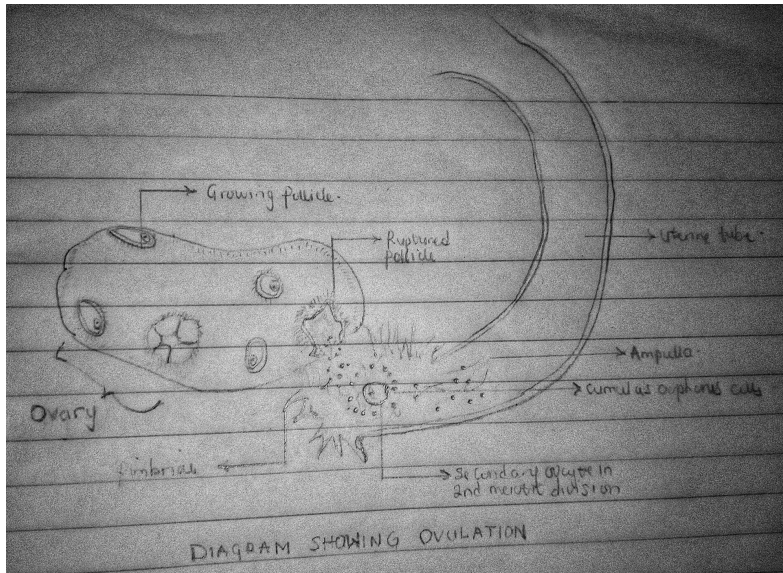 Growing follicle.
Ruptured
follicle
Uterine tube.
Ampulla.
Cumulas oophorus cells
Ovary
fimbriae
Secondary oocyte in
2nd meiotic division
DIAGRAM SHOWING OVULATION